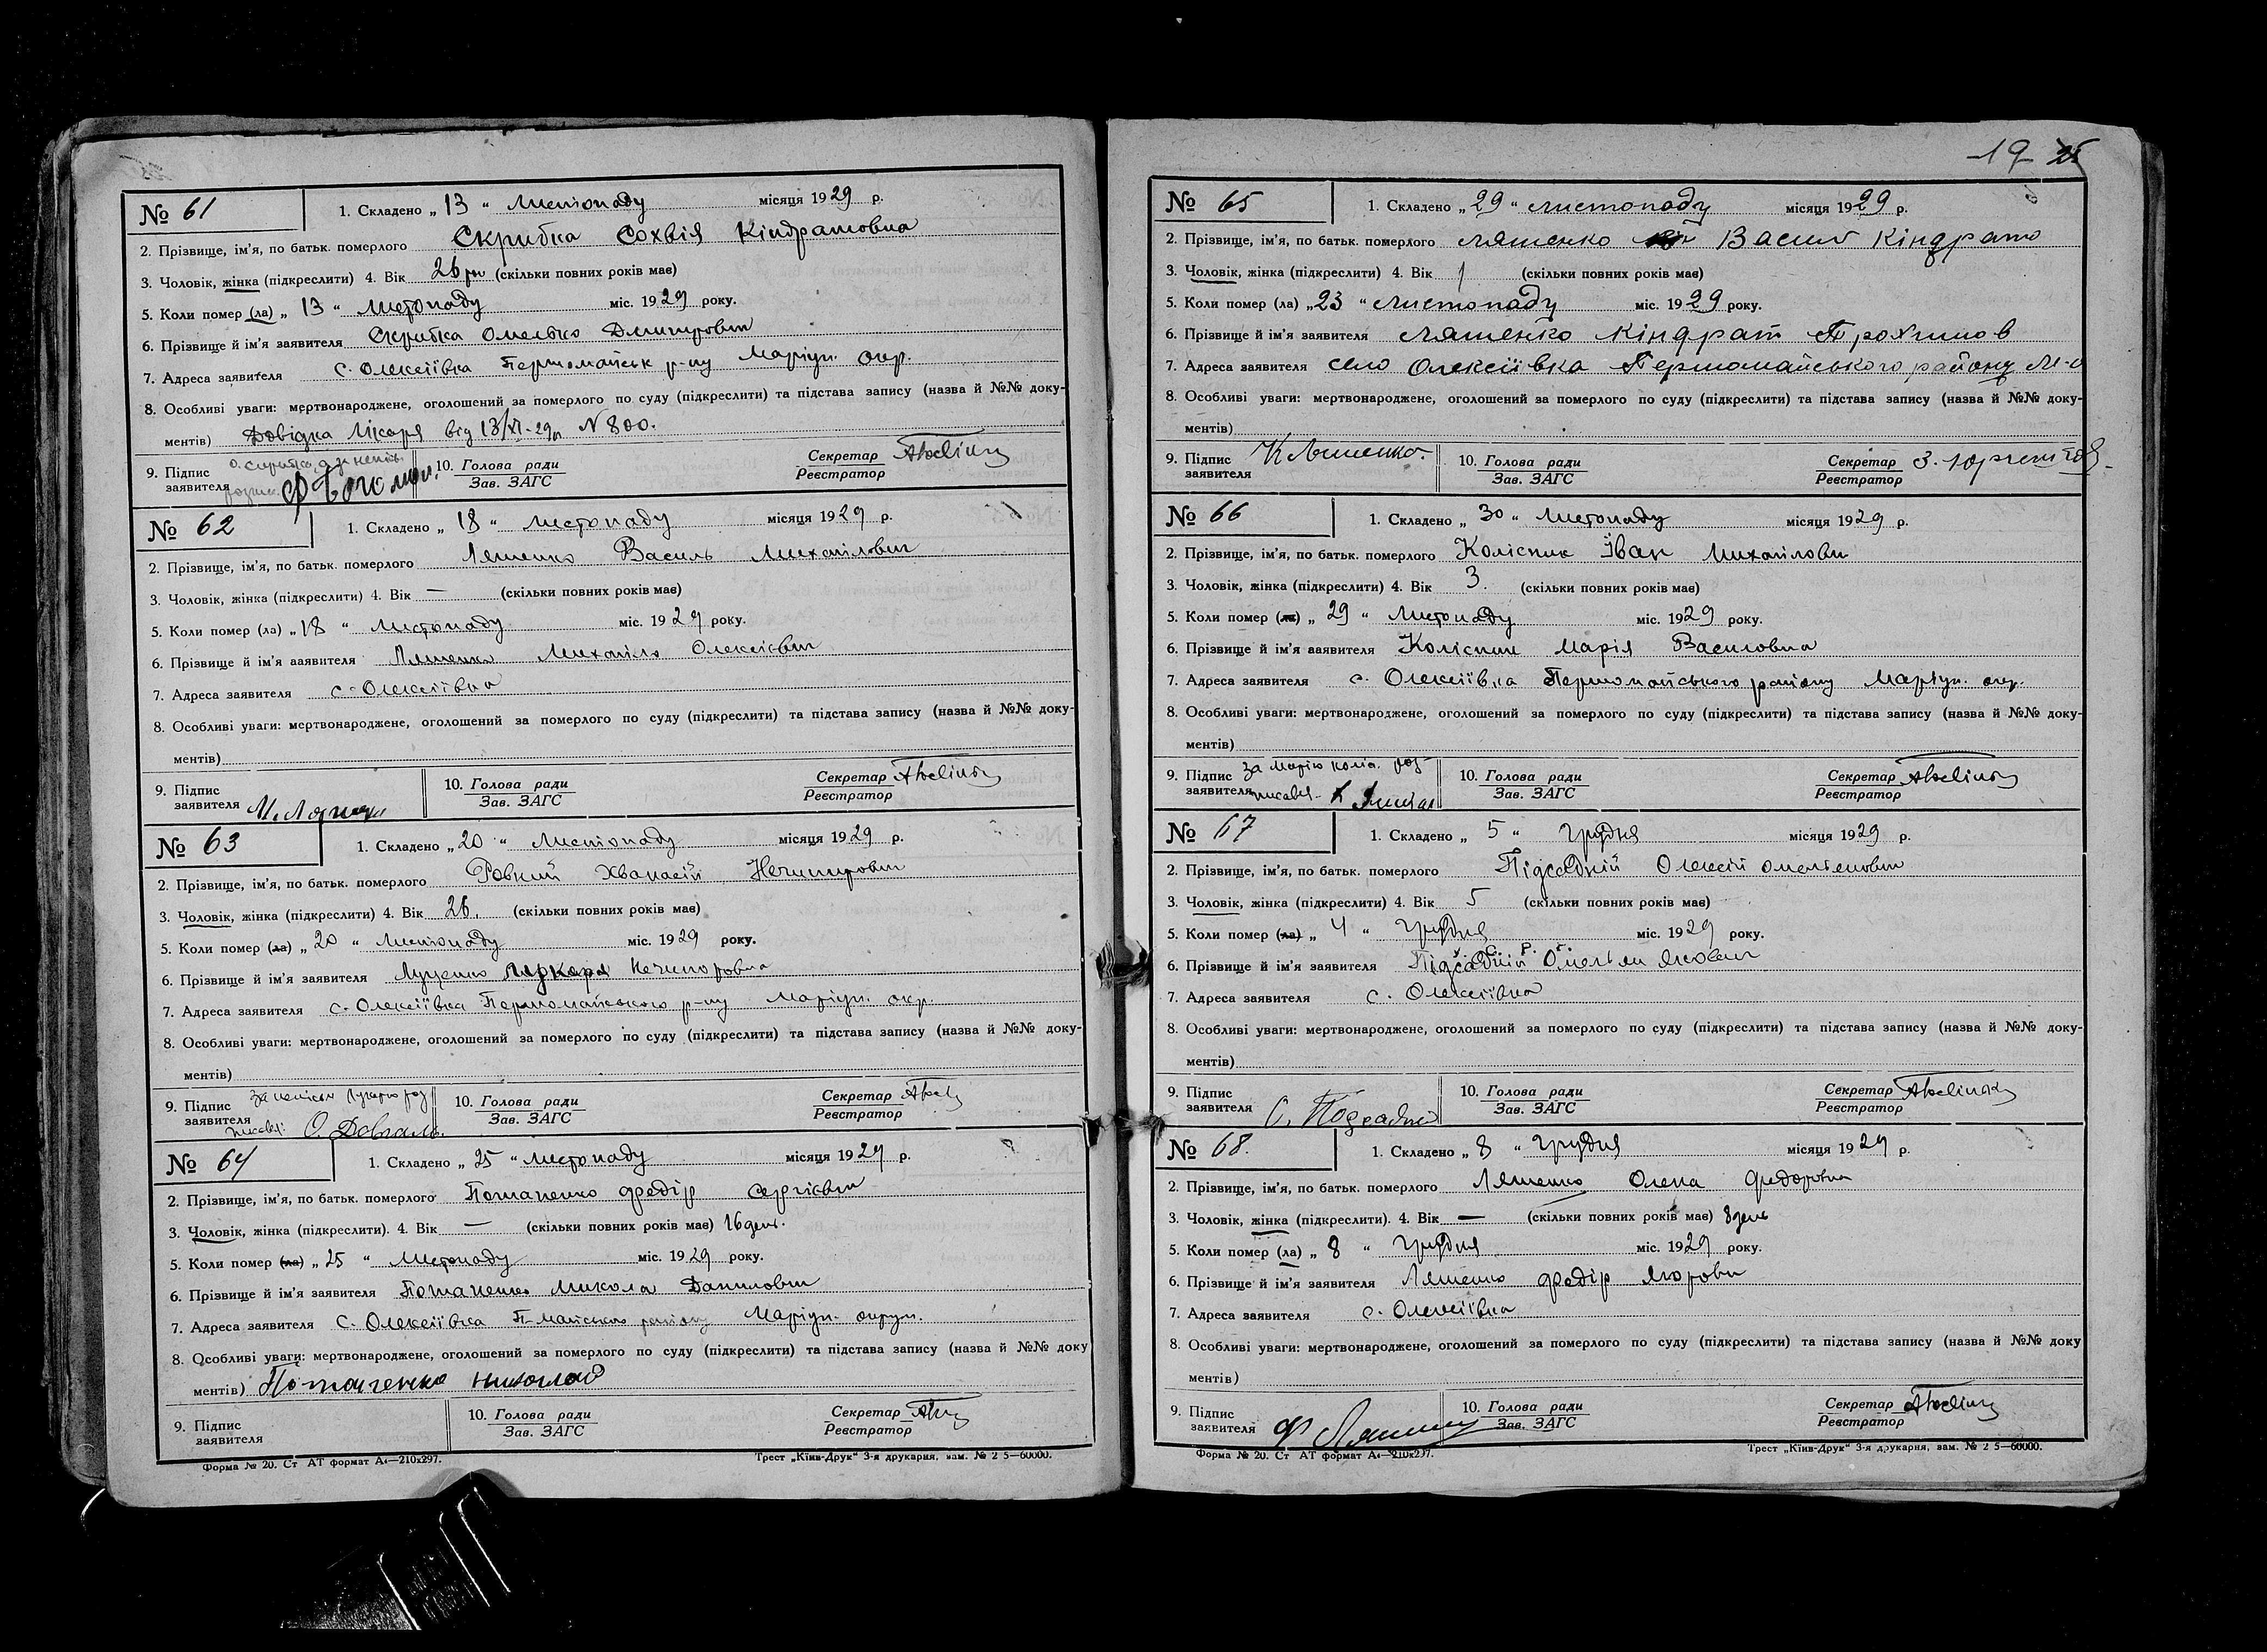 № 61
1. Складено „ 13 “ Листопаду місяця 1929 р.
2. Прізвище, ім'я, по батьк. померлого Скрибка Сохвія Кіндратовна
3. Чоловік, жінка (підкреслити) 4. Вік 26 рн (скільки повних років має)
5. Коли помер (ла) „ 13 “ Листопаду міс. 1929 року.
6. Прізвище й ім'я заявителя Скрибка Омелько Дмитрович
7. Адреса заявителя с. Олексіївка Першомайськ р-ну Маріуп. окр.
8. Особливі уваги: мертвонароджене, оголошений за померлого по суду (підкреслити) та підстава запису (назва й №№ доку-
ментів) Довідка Лікаря від 13/XI-29р N 800.
9. Підпис заявителя
10. Голова ради
Зав. ЗАГС
Секретар
Реєстратор
№ 62
1. Складено „ 18 “ Листопаду місяця 1929 р.
2. Прізвище, ім'я, по батьк. померлого Ляшенко Василь Михайлович
3. Чоловік, жінка (підкреслити) 4. Вік — (скільки повних років має)
5. Коли помер (ла) „ 18 “ Листопаду міс. 1929 року.
6. Прізвище й ім'я заявителя Ляшенко Михайло Олексієвич
7. Адреса заявителя с. Олексіївка
8. Особливі уваги: мертвонароджене, оголошений за померлого по суду (підкреслити) та підстава запису (назва й №№ доку-
ментів)
9. Підпис заявителя
10. Голова ради
Зав. ЗАГС
Секретар
Реєстратор
№ 63
1. Складено „ 20 “ Листопаду місяця 1929 р.
2. Прізвище, ім'я, по батьк. померлого Ровний Хванасій Нечипорович
3. Чоловік, жінка (підкреслити) 4. Вік 26. (скільки повних років має)
5. Коли помер (ла) „ 20 “ Листопаду міс. 1929 року.
6. Прізвище й ім'я заявителя Луценко Нечипоровна
7. Адреса заявителя с. Олексіївка Першомайського р-ну Маріуп. окр.
8. Особливі уваги: мертвонароджене, оголошений за померлого по суду (підкреслити) та підстава запису (назва й №№ доку-
ментів)
9. Підпис заявителя О. Довгаль.
10. Голова ради
Зав. ЗАГС
Секретар
Реєстратор
№ 64
1. Складено „ 25 “ Листопаду місяця 1929 р.
2. Прізвище, ім'я, по батьк. померлого Потапенко Федір Сергієвич
3. Чоловік, жінка (підкреслити). 4. Вік — (скільки повних років має) 16 день.
5. Коли помер (ла) „ 25 “ Листопаду міс. 1929 року.
6. Прізвище й ім'я заявителя Потапенко Микола Данилович
7. Адреса заявителя с. Олексіївка П-майського району Маріуп. округи.
8. Особливі уваги: мертвонароджене, оголошений за померлого по суду (підкреслити) та підстава запису (назва й №№ доку
ментів) Потапенко Николай
9. Підпис заявителя
10. Голова ради
Зав. ЗАГС
Секретар
Реєстратор
Форма № 20. Ст АТ формат А4—210x297.
Трест „Київ-Друк“ 3-я друкарня, зам. № 2 5—60000.
-19- 25
№ 65
1. Складено „ 29 “ листопаду місяця 1929 р.
2. Прізвище, ім'я, по батьк. померлого Ляшенко Васил Кіндрато
3. Чоловік, жінка (підкреслити) 4. Вік 1 (скільки повних років має)
5. Коли помер (ла) „ 23 “ Листопаду міс. 1929 року.
6. Прізвище й ім'я заявителя Ляшенко Кіндрат Трохимов
7. Адреса заявителя село Олексіївка Першомайського району М-о
8. Особливі уваги: мертвонароджене, оголошений за померлого по суду (підкреслити) та підстава запису (назва й №№ доку-
ментів)
9. Підпис заявителя К Ляшенко.
10. Голова ради
Зав. ЗАГС
Секретар
Реєстратор
№ 66
1. Складено „ 30 “ Листопаду місяця 1929 р.
2. Прізвище, ім'я, по батьк. померлого Колісник Іван Михайлович
3. Чоловік, жінка (підкреслити) 4. Вік 3. (скільки повних років має)
5. Коли помер (ла) „ 29 “ Листопаду міс. 1929 року.
6. Прізвище й ім'я заявителя Колісник Марія Василовна
7. Адреса заявителя с. Олексіївка Першомайського району Маріуп. окр.
8. Особливі уваги: мертвонароджене, оголошений за померлого по суду (підкреслити) та підстава запису (назва й №№ доку-
ментів)
9. Підпис заявителя за Марію коліс. роз-
10. Голова ради
Зав. ЗАГС
Секретар
Реєстратор
№ 67
1. Складено „ 5 “ Грудня місяця 1929 р.
2. Прізвище, ім'я, по батьк. померлого Підсадній Олексій Омельянович
3. Чоловік, жінка (підкреслити) 4. Вік 5 (скільки повних років має)
5. Коли помер (ла) „ 4 “ Грудня міс. 1929 року.
6. Прізвище й ім'я заявителя Підсадній Омельян Якович
7. Адреса заявителя с. Олексіївка
8. Особливі уваги: мертвонароджене, оголошений за померлого по суду (підкреслити) та підстава запису (назва й №№ доку-
ментів)
9. Підпис заявителя
10. Голова ради
Зав. ЗАГС
Секретар
Реєстратор
№ 68.
1. Складено „ 8 “ Грудня місяця 1929 р.
2. Прізвище, ім'я, по батьк. померлого Ляшенко Олена Федоровна
3. Чоловік, жінка (підкреслити). 4. Вік — (скільки повних років має) 8 день
5. Коли помер (ла) „ 8 “ Грудня міс. 1929 року.
6. Прізвище й ім'я заявителя Ляшенко Федір
7. Адреса заявителя с. Олексіївка
8. Особливі уваги: мертвонароджене, оголошений за померлого по суду (підкреслити) та підстава запису (назва й №№ доку
ментів)
9. Підпис заявителя
10. Голова ради
Зав. ЗАГС
Секретар
Реєстратор
Форма № 20. Ст АТ формат А4—210x297.
Трест „Київ-Друк“ 3-я друкарня, зам. № 2 5—60000.